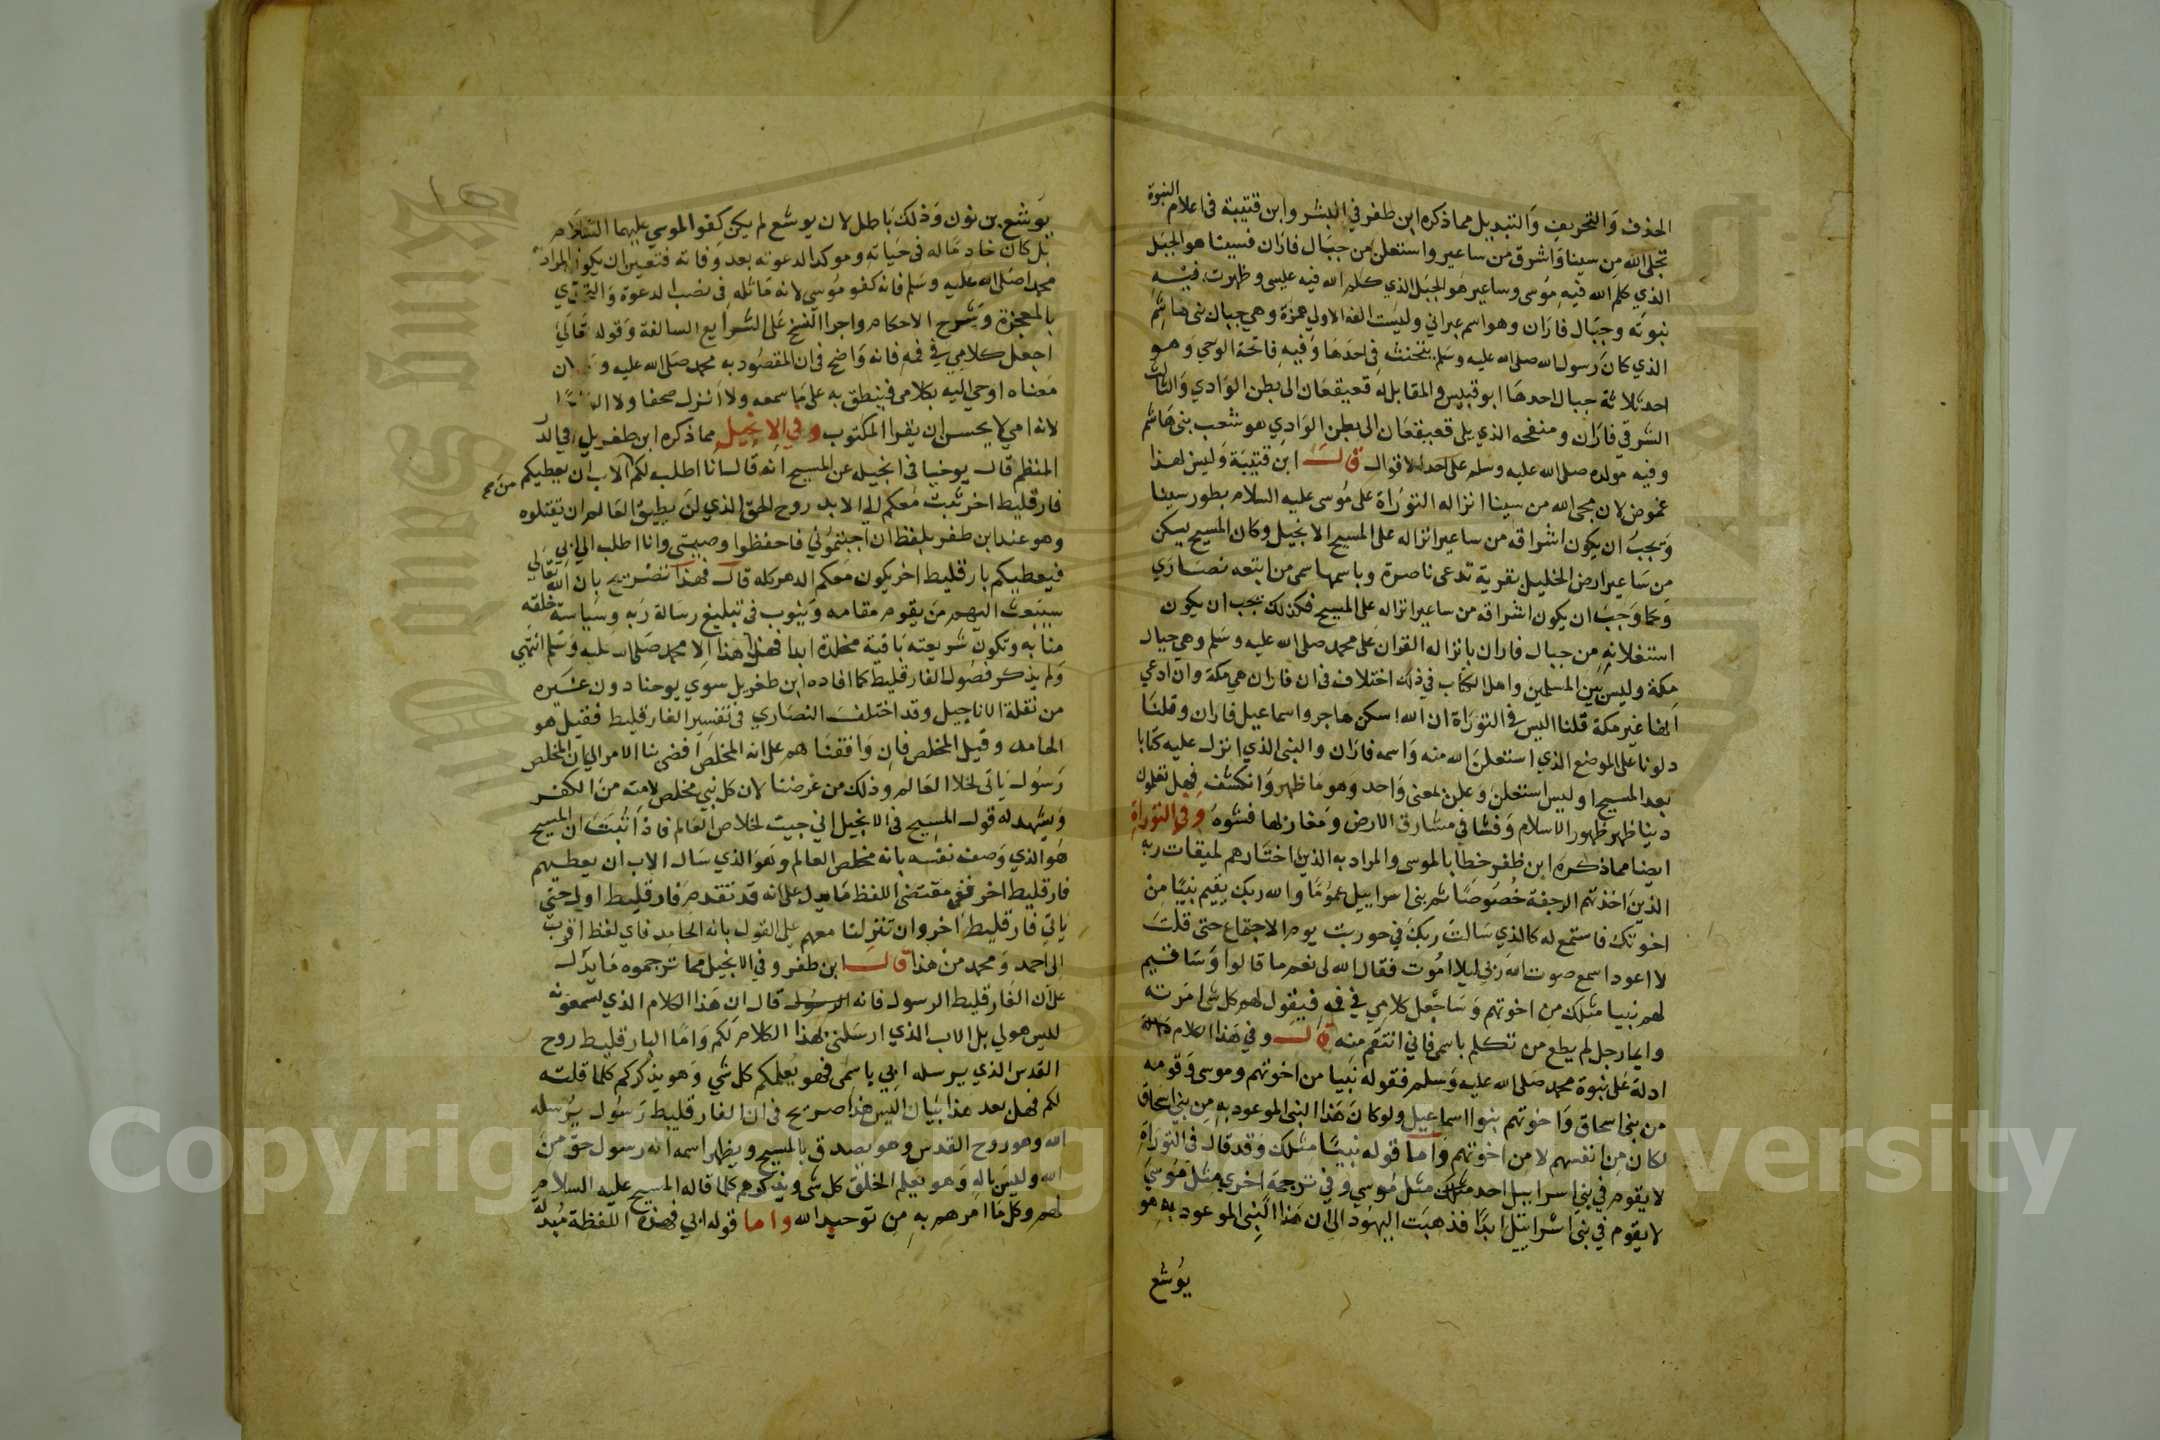 الحذف والتحريف والتبديل مما ذكره ابن ظفر في البشر وابن قتيبة في اعلام النبوة
تجلى الله من سينا واشرق من ساعير واستعلن من جبال فاران فسينا هو الجبل
الذي كلم الله فيه موسى وساعير هو الجبل الذي كلم الله فيه عيسى وظهرت فيه
نبوته وجبال فاران وهو اسم عبراني وليست الفه الاولى همزة وهي جبال بني هاشم
الذي كان رسول الله صلى الله عليه وسلم يتحنث في احدها وفيه فاتحة الوحي وهو
احد ثلاثة جبال احدها ابو قبيس والمقابل له قعيقعان الى بطن الوادي والثالث
الشرقي فاران ومنفحه الذي يلي قعيقعان الى بطن الوادي هو شعب بني هاشم
وفيه مولده صلى الله عليه وسلم على احد الاقوال قال ابن قتيبة وليس لهذا
غموض لان مجى الله من سينا انزاله التوراة على موسى عليه السلام بطور سينا
ويجب ان يكون اشراقه من ساعير انزاله على المسيح الانجيل وكان المسيح يسكن
من ساعير ارض الخليل بقرية تدعى ناصرة وباسمها سمى من اتبعه نصارى
وكما وجب ان يكون اشراقه من ساعير انزاله على المسيح فكذلك يجب ان يكون
استعلانه من جبال فاران بانزاله القران على محمد صلى الله عليه وسلم وهي جبال
مكة وليس بين المسلمين واهل الكتاب في ذلك اختلاف في ان فاران هي مكة وان ادعى
انها غير مكة قلنا اليس في التوراة ان الله اسكن هاجر واسماعيل فاران وقلنا
دلونا على الموضع الذي استعلن الله منه واسمه فاران والنبي الذي انزل عليه كتابا
بعد المسيح اوليس استعلن وعلن لمعنى واحد وهو ما ظهر وانكشف فهل تعلمون
دينا ظهر ظهور الاسلام وفشا في مشارق الارض ومغاربها فشوه وفي التوراة
ايضا مما ذكره ابن ظفر خطابا لموسى والمراد به الذين اختارهم لميقات ربه
الذين اخذتهم الرجفة خصوصا ثم بني اسراييل عموما والله ربك يقيم نبيا من
اخوتك فاستمع له كالذي سالت ربك في حوريت يوم الاجتماع حتى قلت
لا اعود اسمع صوت الله ربي ليلا اموت فقال الله لي نعم ما قالوا وساقيم
لهم نبيا مثلك من اخوتهم وساجعل كلامي في فمه فيقول لهم كل شي امرته
وايما رجل لم يطع من تكلم باسمى فاني انتقم منه قال وفي هذا الكلام
ادلة على نبوة محمد صلى الله عليه وسلم فقوله نبيا من اخوتهم وموسى وقومه
من بني اسحاق واخوتهم بنوا اسماعيل ولو كان هذا النبي الموعود به من بني اسحاق
لكان من انفسهم لا من اخوتهم واما قوله نبيا مثلك وقد قال في التوراة
لا يقوم في بني اسراييل احد مثل موسى وفي ترجمة اخرى مثل موسى
لا يقوم في بني اسراييل ابدا فذهبت اليهود الى ان هذا النبي الموعود به هو
يوشع
يوشع بن نون وذلك باطل لان يوشع لم يكن كفوا لموسى عليهما السلام
بل كان خادما له في حياته وموكدا لدعوته بعد وفاته فتعين ان يكون المراد
محمد اصلى الله عليه وسلم فانه كفو موسى لانه ماثله في نصب الدعوة والتحدي
بالمعجزة وشرح الاحكام واجرا النسخ على الشرايع السالفة وقوله تعالى
اجعل كلامي في فمه فانه واضح في ان المقصود به محمد صلى الله عليه و لان
معناه اوحي اليه بكلامى فينطق به على ما سمعه ولا انزل صحفا ولا
لانه امي لا يحسن ان يقرا المكتوب وفي الانجيل مما ذكره ابن طغربل في الدر
المنظم قال يوحنا في انجيله عن المسيح انه قال انا اطلب لكم الاب ان يعطيكم
فارقليط اخر يثبت معكم الى الابد روح الحق الذي لن يطيق العالم ان يقتلوه
وهو عند ابن ظفر بلفظ ان احببتموني فاحفظوا وصيتي وانا اطلب الى ابي
فيعطيكم بارقليط اخر يكون معكم الدهر كله قال فهذا تصريح بان الله تعالى
سيبعث اليهم من يقوم مقامه وينوب في تبليغ رسالة ربه وسياسة خلقه
منابه وتكون شريعته باقية مخلدة ابدا فهل هذا الا محمد صلى الله عليه وسلم انتهى
ولم يذكر فصول الفارقليط كما افاده ابن طغربل سوى يوحنا دون غيره
من نقلة الاناجيل وقد اختلف النصارى في تفسير الفارقليط فقيل هو
الحامد وقيل المخلص فان وافقنا هم على انه المخلص افضى بنا الامر الى ان المخلص
رسول ياتى لخلاص العالم وذلك من غرضنا لان كل نبي مخلص لامته من الكفر
ويشهد له قول المسيح في الانجيل اني جيت لخلاص العالم فاذا ثبت ان المسيح
هو الذي وصف نفسه بانه مخلص العالم وهو الذي سال الاب ان يعطيهم
فارقليط اخر ففي مقتضى اللفظ ما يدل على انه قد تقدم فارقليط اول حتى
ياتي فارقليط اخر وان تنزلنا معهم على القول بانه الحامد فاي لفظ اقرب
الى احمد ومحمد من هذا قال ابن ظفر وفي الانجيل مما ترجموه ما يدل
على ان الفارقليط الرسول فانه قال ان هذا الكلام الذي تسمعونه
ليس هو لي بل الاب الذي ارسلني بهذا الكلام لكم واما البارقليط روح
القدس الذي يرسله ابي باسمى فهو يعلمكم كل شي وهو يذكركم كلما قلته
لكم فهل بعد هذا بيان اليس هذا صريح في ان الفارقليط رسول يرسله
الله وهو روح القدس وهو يصدق بالمسيح ويظهر اسمه انه رسول حق من
الله وليس باله وهو يعلم الخلق كل شي ويذكرهم كلما قاله المسيح عليه السلام
لهم وكل ما امرهم به من توحيد الله واما قوله ابي فهذه اللفظة مبدلة
Copyright © King Saud University
King Saud University